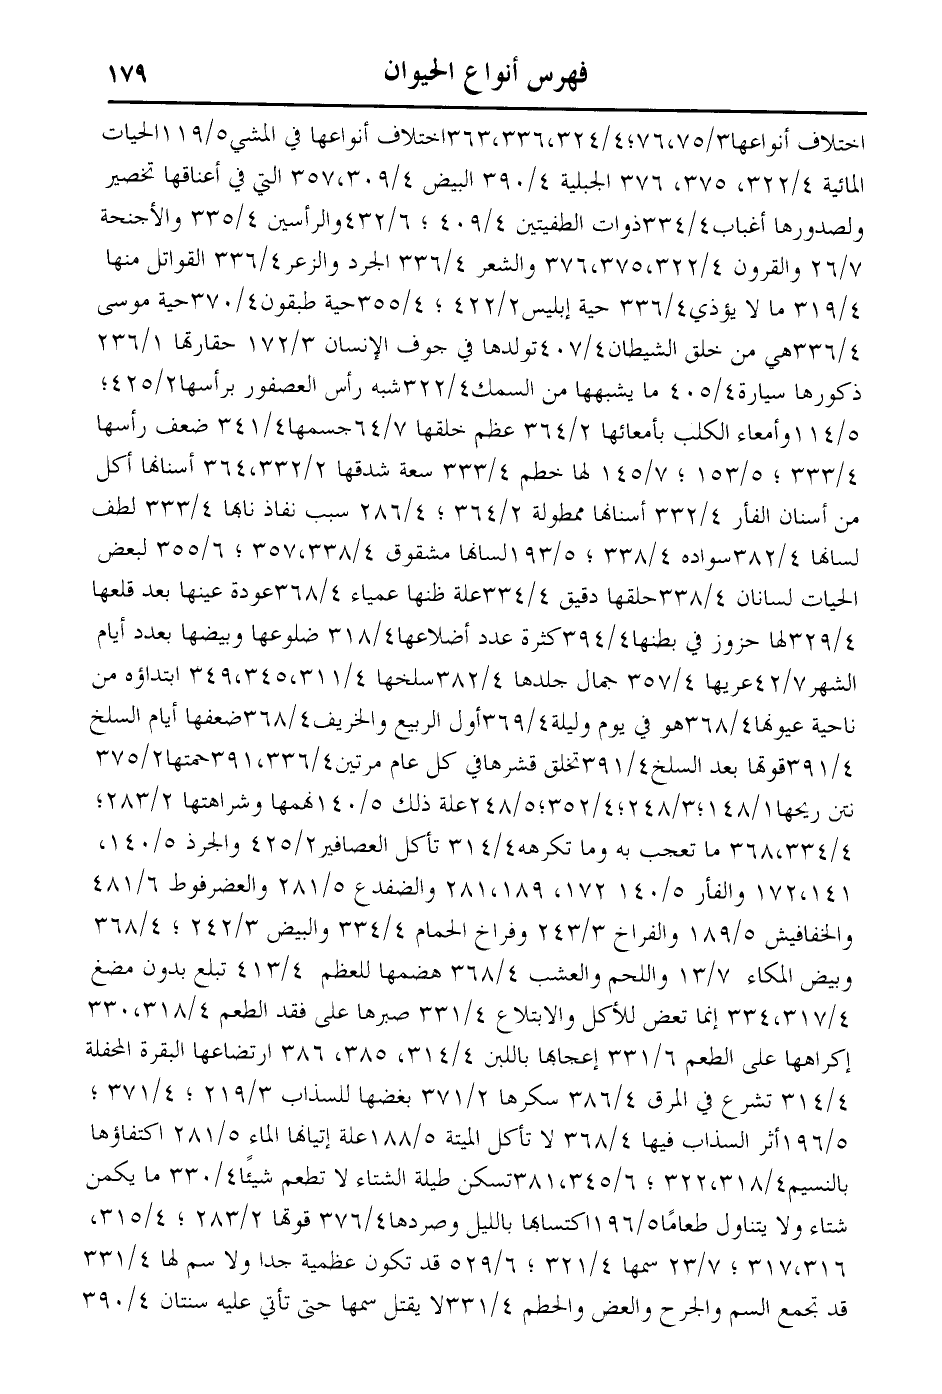 فهرس أنواع الحيوان ١٧٩
اختلاف أنواعها٧٥/٣،٧٦؛٣٢٤/٤،٣٣٦،٣٦٣اختلاف أنواعها في المشي١١٩/٥الحيات
المائية ٣٢٢/٤، ٣٧٥، ٣٧٦ الجبلية ٣٩٠/٤ البيض ٣٠٩/٤،٣٥٧ التي في أعناقها تخصير
ولصدورها أغباب٣٣٤/٤ذوات الطفيتين ٤٠٩/٤ ؛ ٤٣٢/٦والرأسين ٣٣٥/٤ والأجنحة
٢٦/٧ والقرون ٣٢٢/٤،٣٧٥،٣٧٦ والشعر ٣٣٦/٤ الجرد والزعر٣٣٦/٤ القواتل منها
٣١٩/٤ ما لا يؤذي٣٣٦/٤ حية إبليس٤٢٢/٢ ؛ ٣٥٥/٤حية طبقون٣٧٠/٤حية موسى
٣٣٦/٤هي من خلق الشيطان٤٠٧/٤تولدها في جوف الإنسان ١٧٢/٣ حقارتها ٢٣٦/١
ذكورها سيارة٤٠٥/٤ ما يشبهها من السمك٣٢٢/٤شبه رأس العصفور برأسها٤٢٥/٢؛
١١٤/٥وأمعاء الكلب بأمعائها ٣٦٤/٢ عظم خلقها ٦٤/٧جسمها٣٤١/٤ ضعف رأسها
٣٣٣/٤ ؛ ١٥٣/٥ ؛ ١٤٥/٧ لها خطم ٣٣٣/٤ سعة شدقها ٣٣٢/٢،٣٦٤ أسنانها أكل
من أسنان الفأر ٣٣٢/٤ أسنانها ممطولة ٣٦٤/٢ ؛ ٢٨٦/٤ سبب نفاذ نابها ٣٣٣/٤ لطف
لسانها ٣٨٢/٤سواده ٣٣٨/٤ ؛ ١٩٣/٥لسانها مشقوق ٣٣٨/٤،٣٥٧ ؛ ٣٥٥/٦ لبعض
الحيات لسانان ٣٣٨/٤حلقها دقيق ٣٣٤/٤علة ظنها عمياء ٣٦٨/٤عودة عينها بعد قلعها
٣٢٩/٤لها حزوز في بطنها٣٩٤/٤كثرة عدد أضلاعها٣١٨/٤ ضلوعها وبيضها بعدد أيام
الشهر٤٢/٧عريها ٣٥٧/٤ جمال جلدها ٣٨٢/٤سلخها ٣١١/٤،٣٤٥،٣٤٩ ابتداؤه من
ناحية عيونها٣٦٨/٤هو في يوم وليلة٣٦٩/٤أول الربيع والخريف٣٦٨/٤ضعفها أيام السلخ
٣٩١/٤قوتها بعد السلخ٣٩١/٤تخلق قشرهافي كل عام مرتين٣٣٦/٤،٣٩١حمتها٣٧٥/٢
نتن ريحها١٤٨/١؛٢٤٨/٣؛٣٥٢/٤؛٢٤٨/٥علة ذلك ١٤٠/٥نهمها وشراهتها ٢٨٣/٢؛
٣٣٤/٤،٣٦٨ ما تعجب به وما تكرهه٣١٤/٤ تأكل العصافير٤٢٥/٢ والجرذ ١٤٠/٥،
١٤١،١٧٢ والفأر ١٤٠/٥ ١٧٢، ١٨٩،٢٨١ والضفدع ٢٨١/٥ والعضرفوط ٤٨١/٦
والخفافيش ١٨٩/٥ والفراخ ٢٤٣/٣ وفراخ الحمام ٣٣٤/٤ والبيض ٢٤٢/٣ ؛ ٣٦٨/٤
وبيض المكاء ١٣/٧ واللحم والعشب ٣٦٨/٤ هضمها للعظم ٤١٣/٤ تبلع بدون مضغ
٣١٧/٤،٣٣٤ إنما تعض للأكل والابتلاع ٣٣١/٤ صبرها على فقد الطعم ٣١٨/٤،٣٣٠
إكراهها على الطعم ٣٣١/٦ إعجابها باللبن ٣١٤/٤، ٣٨٥، ٣٨٦ ارتضاعها البقرة المحفلة
٣١٤/٤ تشرع في المرق ٣٨٦/٤ سكرها ٣٧١/٢ بغضها للسذاب ٢١٩/٣ ؛ ٣٧١/٤ ؛
١٩٦/٥أثر السذاب فيها ٣٦٨/٤ لا تأكل الميتة ١٨٨/٥علة إتيانها الماء ٢٨١/٥ اكتفاؤها
بالنسيم٣١٨/٤،٣٢٢ ؛ ٣٤٥/٦،٣٨١تسكن طيلة الشتاء لا تطعم شيئًا٣٣٠/٤ ما يكمن
شتاء ولا يتناول طعامًا١٩٦/٥اكتسابها بالليل وصردها٣٧٦/٤ قوتها ٢٨٣/٢ ؛ ٣١٥/٤،
٣١٦،٣١٧ ؛ ٢٣/٧ سمها ٣٢١/٤ ؛ ٥٢٩/٦ قد تكون عظمية جدا ولا سم لها ٣٣١/٤
قد تجمع السم والجرح والعض والحطم ٣٣١/٤لا يقتل سمها حتى تأتي عليه سنتان ٣٩٠/٤